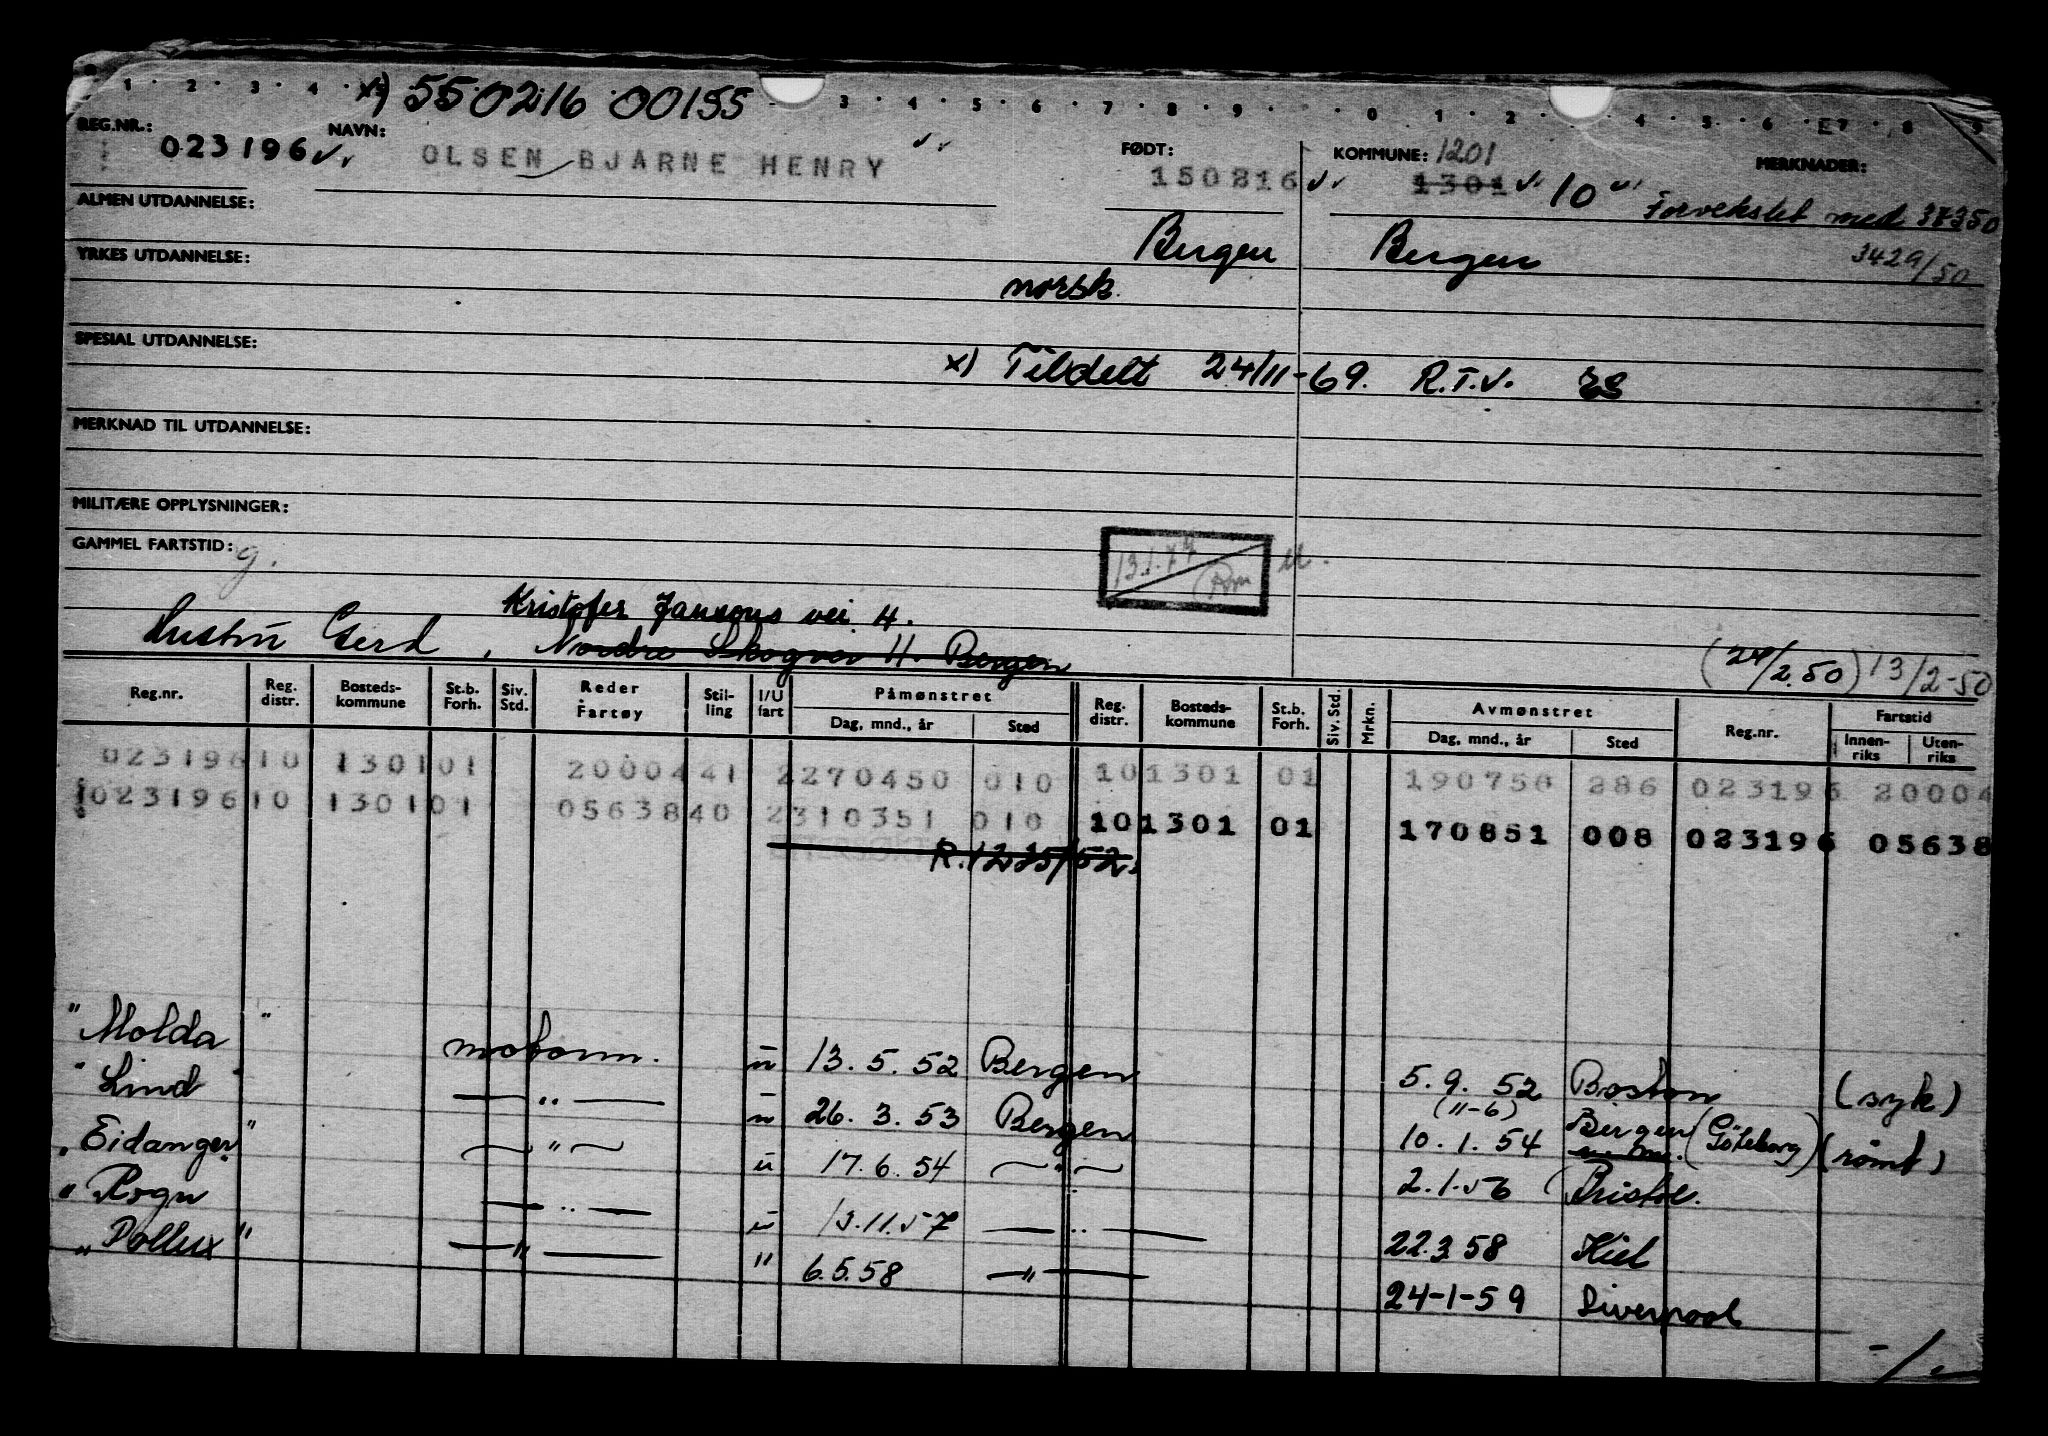 x) 550216 00155
REG.NR.: NAVN: FØDT: KOMMUNE: 1201 MERKNADER:
023196 OLSEN BJARNE HENRY 150816 1301 10 Forvekslet med 37350
ALMEN UTDANNELSE:
Bergen Bergen 3429/50
YRKES UTDANNELSE:
norsk.
SPESIAL UTDANNELSE:
x) Tildelt 24/11-69. R.T.V.
MERKNAD TIL UTDANNELSE:
MILITÆRE OPPLYSNINGER:
GAMMEL FARTSTID: g.
13.1.77
Kristofer Jansons vei 4.
Hustru Gerd, Nordre Skogvei 11. Bergen
(24/2.50) 13/2-50
Reg.nr. Reg. distr. Bosteds-kommune St.b. Forh. Siv. Std. Reder Fartøy Stil-ling I/U fart Påmønstret Reg. distr. Bosteds-kommune St.b. Forh. Siv. Std. Mrkn. Avmønstret Reg.nr. Fartstid
Dag, mnd., år Sted Dag, mnd., år Sted Innen-riks Uten-riks
023196 10 1301 01 2000441 2270450 010 10 1301 01 190750 286 023196 20004
023196 10 1301 01 0563840 2310351 010 10 1301 01 170851 008 023196 05638
R.1235/52.
"Molda" motorm. u 13.5.52 Bergen 5.9.52 Boston (syk)
"Lind" — " — u 26.3.53 Bergen (11-6) 10.1.54 Bergen (Göteborg) (rømt)
"Eidanger" — " — u 17.6.54 — " — 2.1.56 Bristol.
"Rogn — " — u 13.11.57 — " — 22.3.58 Kiel
"Pollux" — " — " 6.5.58 — " — 24-1-59 Liverpool